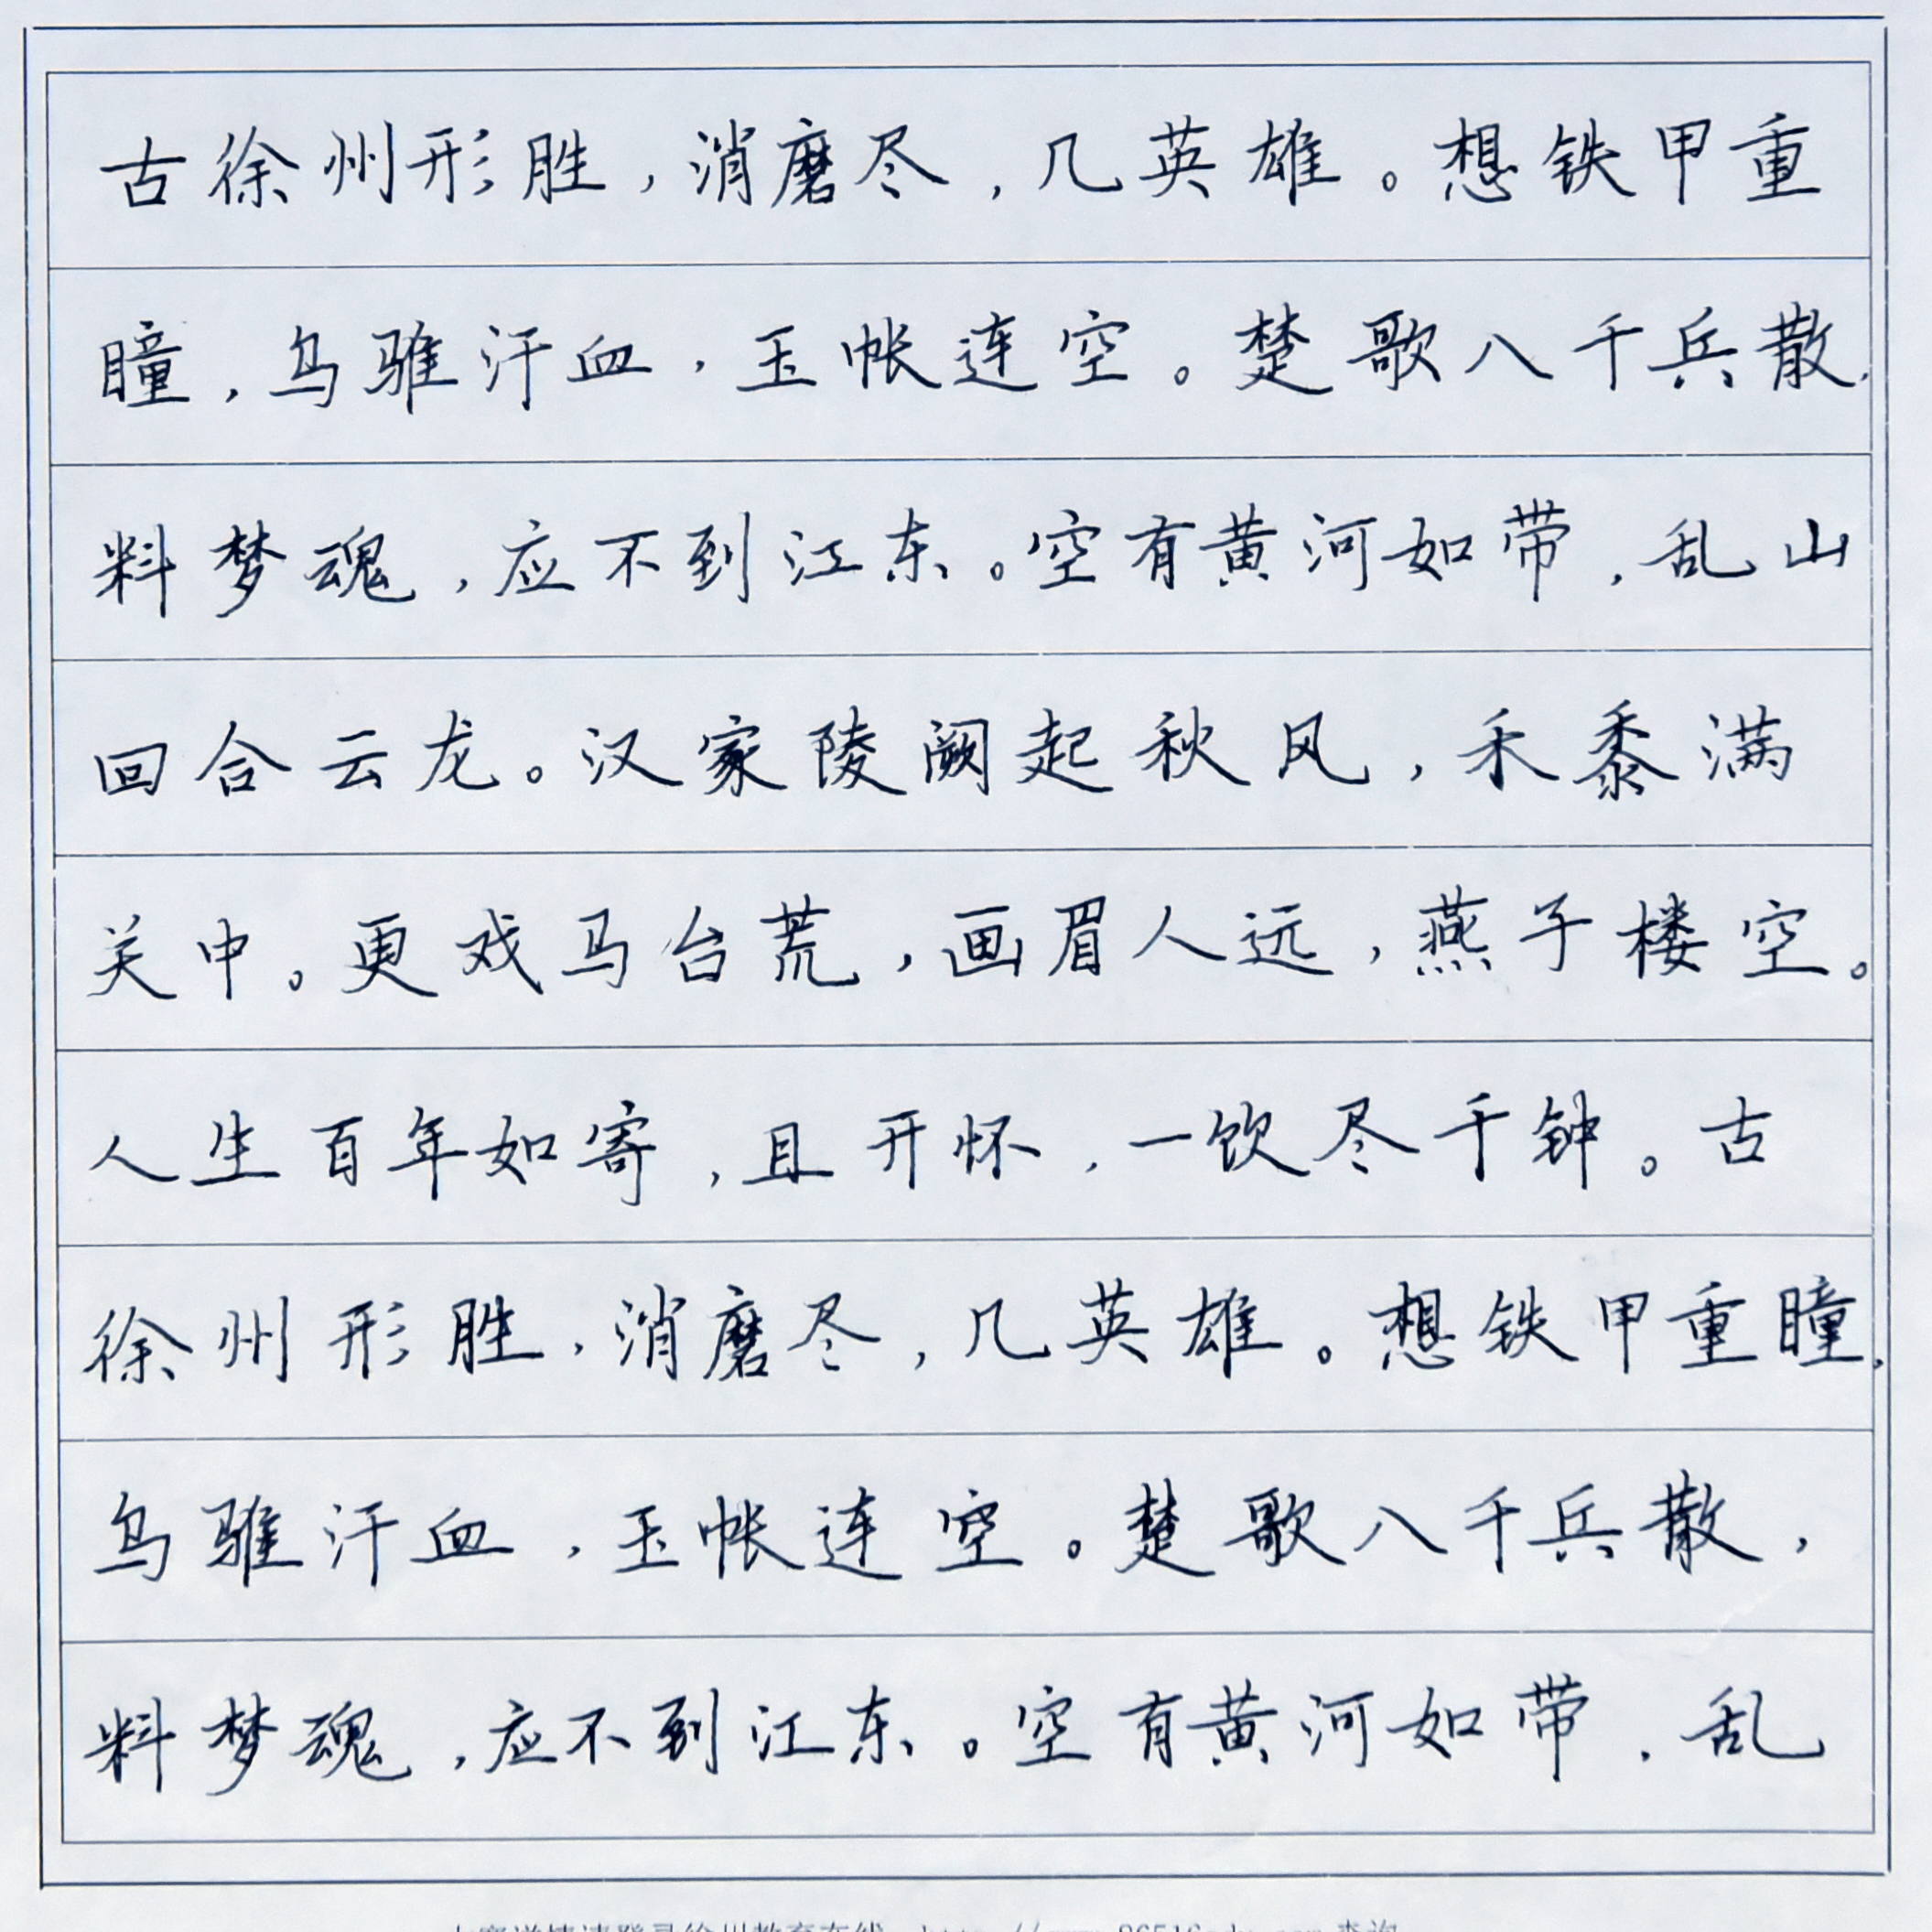 古徐州形胜，消磨尽，几英雄。想铁甲重
瞳，乌骓汗血，玉帐连空。楚歌八千兵散，
料梦魂，应不到江东。空有黄河如带，乱山
回合云龙。汉家陵阙起秋风，禾黍满
关中。更戏马台荒，画眉人远，燕子楼空。
人生百年如寄，且开怀，一饮尽千钟。古
徐州形胜，消磨尽，几英雄。想铁甲重瞳，
乌骓汗血，玉帐连空。楚歌八千兵散，
料梦魂，应不到江东。空有黄河如带，乱